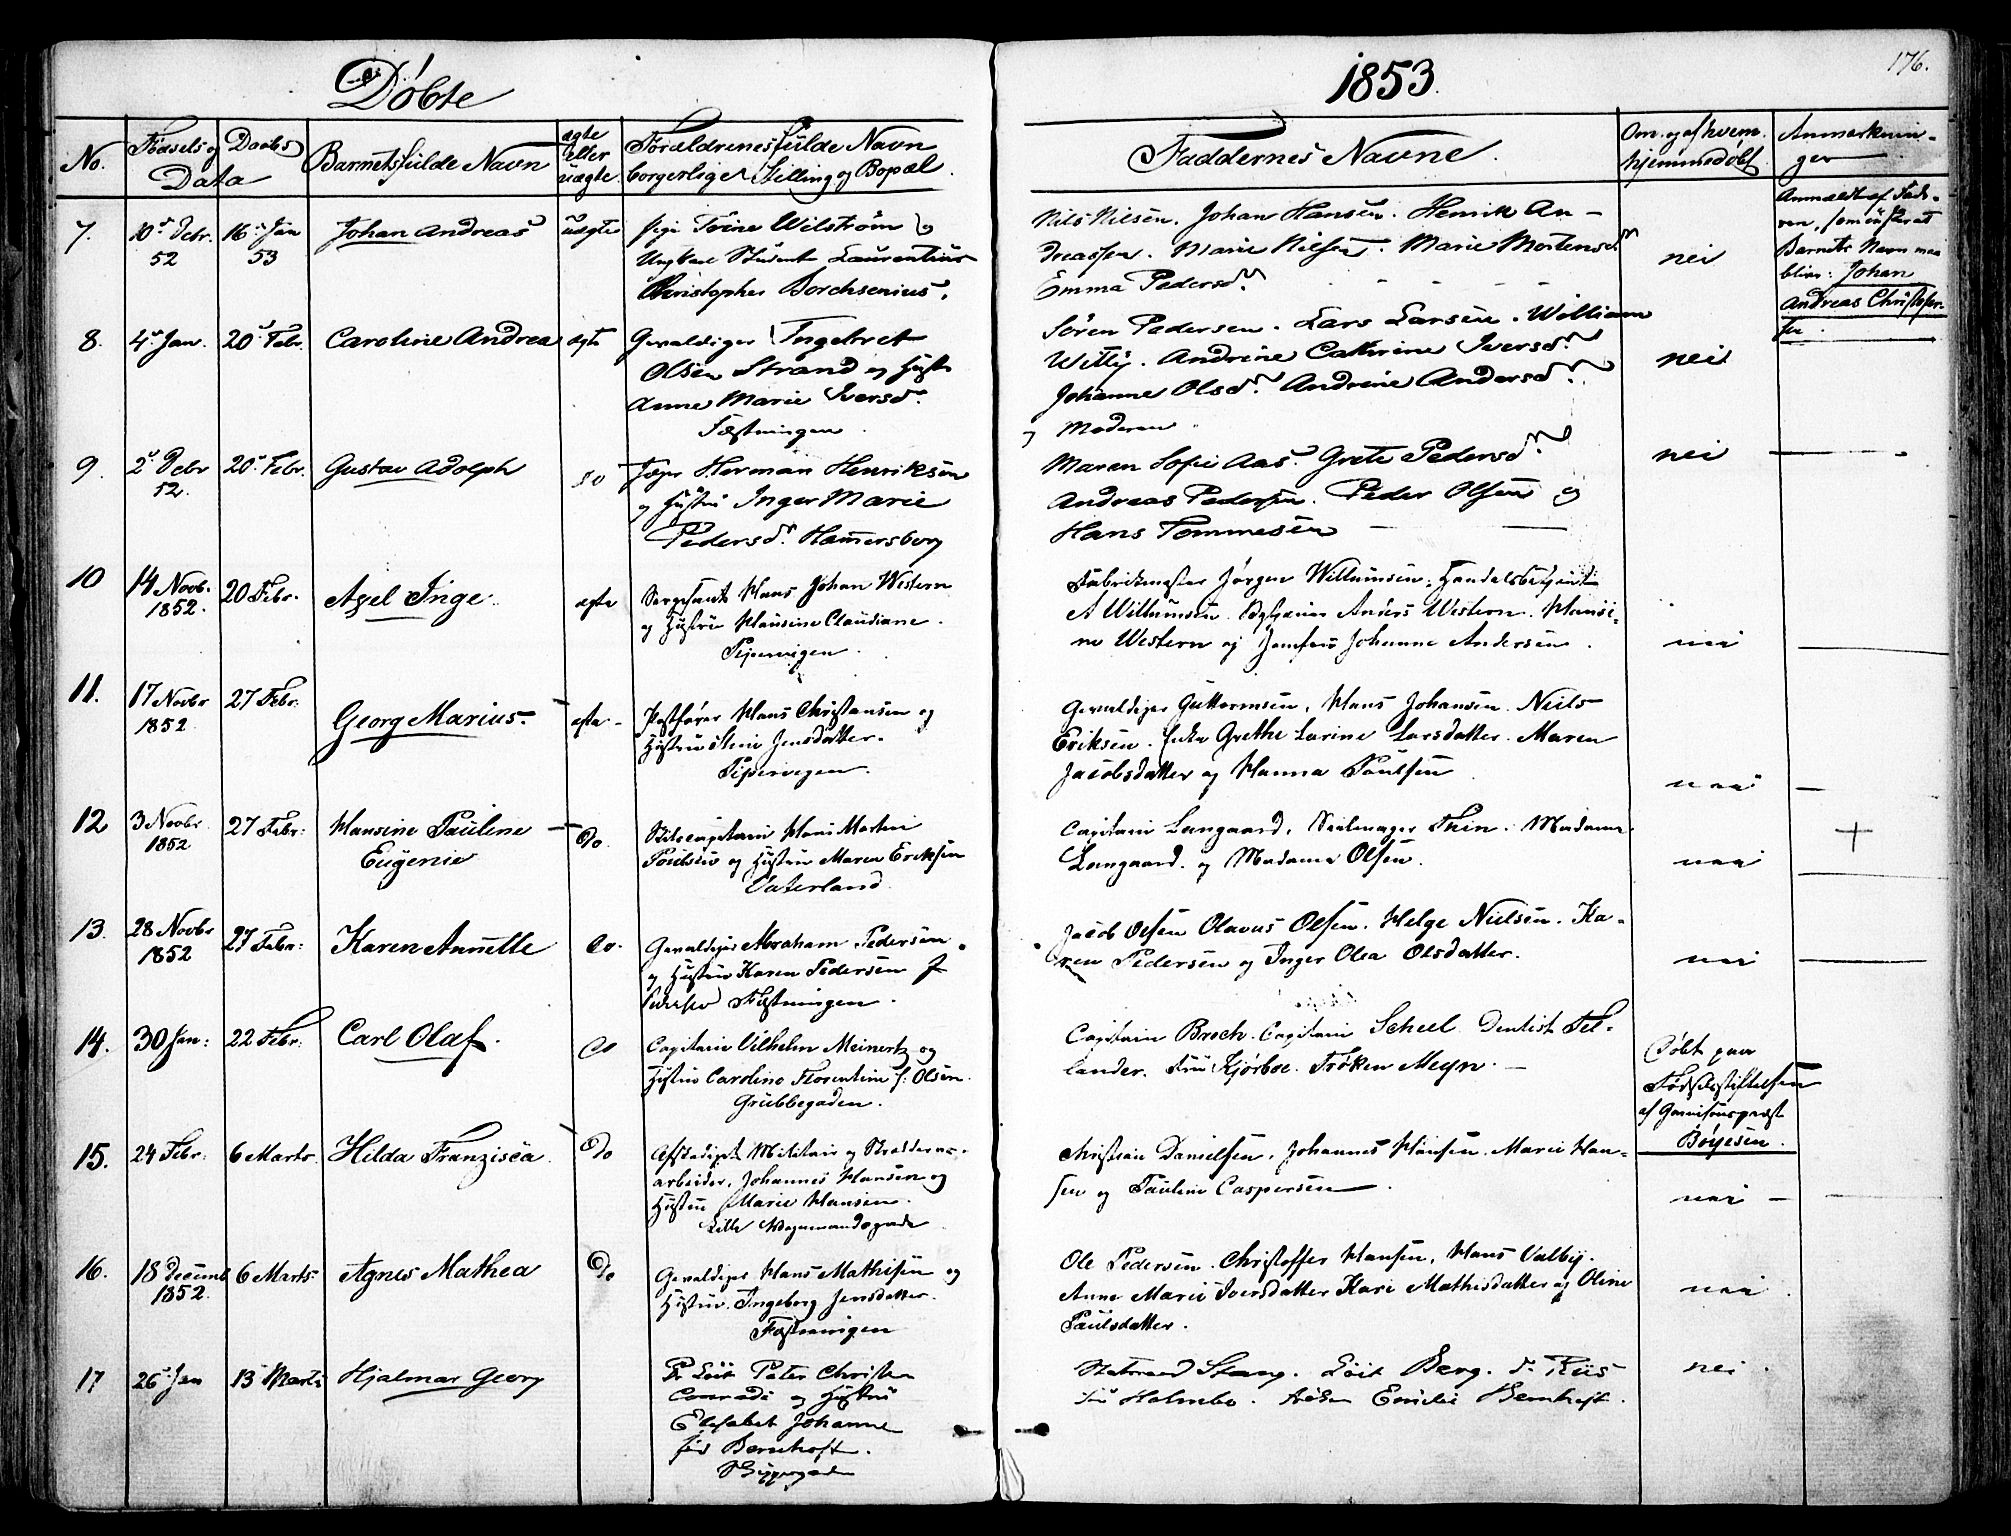 Döbte
1853.
176.
No.
Födsels og Daabs
Data
Barnets fulde Navn
ægte
eller
uægte
Forældrenes fulde Navn
borgerlige Stilling og Bopæl.
Faddernes Navne.
Om og af hvem
hjemmedöbt
Anmærknin-
ger
7.
10d Debr.
52
16d Jan
53
Johan Andreas
uægte
Pige Trine Wilström og
Ungkarl Student Laurentius
Christopher Borchsenius.
Nils Nilsen. Johan Hansen. Henrik An-
dreassen. Marie Nilsen. Marie Mortensdr
Emma Pedersdr
nei
Anmeldt af Fade-
ren,
Barnets Navn maa
blive: Johan
Andreas Christopher-
sen.
8.
4d Jan.
20d Febr.
Caroline Andrea
ægte
Gevaldiger Ingebret
Olsen Strand og Hustr
Anne Marie Iversdr
Fæstningen
Sören Pedersen. Lars Larsen. William
Witty. Andrine Cathrine Iversdr
Johanne Olsdr Andrine Andersdr
og Moderen
nei
9.
2d Debr
52.
20d Febr.
Gustav Adolph
do
Herman Henriksen
og Hustru Inger Marie
Pedersdr. Hammersborg
Maren Sofie Aas. Grete Pedersdr
Andreas Pedersen. Peder Olsen og
Hans Tommesen
nei
10
14 Novbr.
1852.
20 Febr.
Axel Inge
ægte
Sergeant Hans Johan Western
og Hustru Hansine Claudiane.
Pipervigen.
Fabrikmester Jörgen Willumsen, Handelsbetjent
A Willumsen. Anders Western. Hansi-
ne Western og Jomfru Johanne Andersen.
nei
11.
17 Novbr
1852
27 Febr.
Georg Marius.
ægte
Postförer Hans Christansen og
Hustru Stine Jensdatter.
Pipervigen.
Gevaldiger Guttormsen, Hans Johansen. Neils
Eriksen. Enke Grethe Larine Larsdatter. Maren
Jacobsdatter og Hanna Paulsen
nei
12
3 Novbr.
1852
27 Febr:
Hansine Pauline
Eugenie
Do.
Hans Martin
Poulsen og Hustru Maren Eriksen
Vaterland.
Capitain Langaard, Seilmager Thin. Madame
Langaard. og Madame Olsen.
nei
+
13.
28 Novbr
1852
27 Febr:
Karen Annette
Do.
Gevaldiger Abraham Pedersen
og Hustru Karen Pedersen f
Fæstningen.
Jacob Olsen Olavus Olsen. Helge Nielsen. Ka-
ren Pedersen og Inger Olea Olsdatter.
nei
14.
30 Jan:
22 Febr:
Carl Olaf.
Do
Capitain Vilhelm Meinertz og
Hustru Caroline Florentine f: Olsen.
Grubbegaden.
Capitain Broch. Capitain Scheel. Dentist Fel-
lander. Fru Kjörboe. Fröken Meyn.
Döbt paa
Fødselsstiftelsen
af Garnisonspræst
Böyesen.
15.
24 Febr:
6 Marts.
Hilda Franzisca
Do
Afskediget Militair og Skrædder-
arbeider, Johannes Hansen og
Hustru Marie Hansen.
Lille Vognmandsgade
Christian Danielsen, Johannes Hansen. Marie Han-
sen og Pauline Caspersen.
nei
16.
18 Decemb
1852.
6 Marts.
Agnes Mathea
Do
Gevaldiger Hans Mathisen og
Hustru. Ingeborg Jensdatter.
Fæstningen
Ole Pedersen. Christoffer Hansen, Hans Valby.
Anne Marie Iversdatter Kari Mathisdatter og Oline
Paulsdatter.
nei.
17
26d Jan
13d Marts
Hjalmar Georg
Pr Löit Peter Christen
Conradi og Hustru
Elisabet Johanne
föd Bernhoft.
Skippergaden
Statsraad Stang. Löit Berg. dr Riis
Fru Holmboe. Fröken Emilie Bernhoft.
nei.